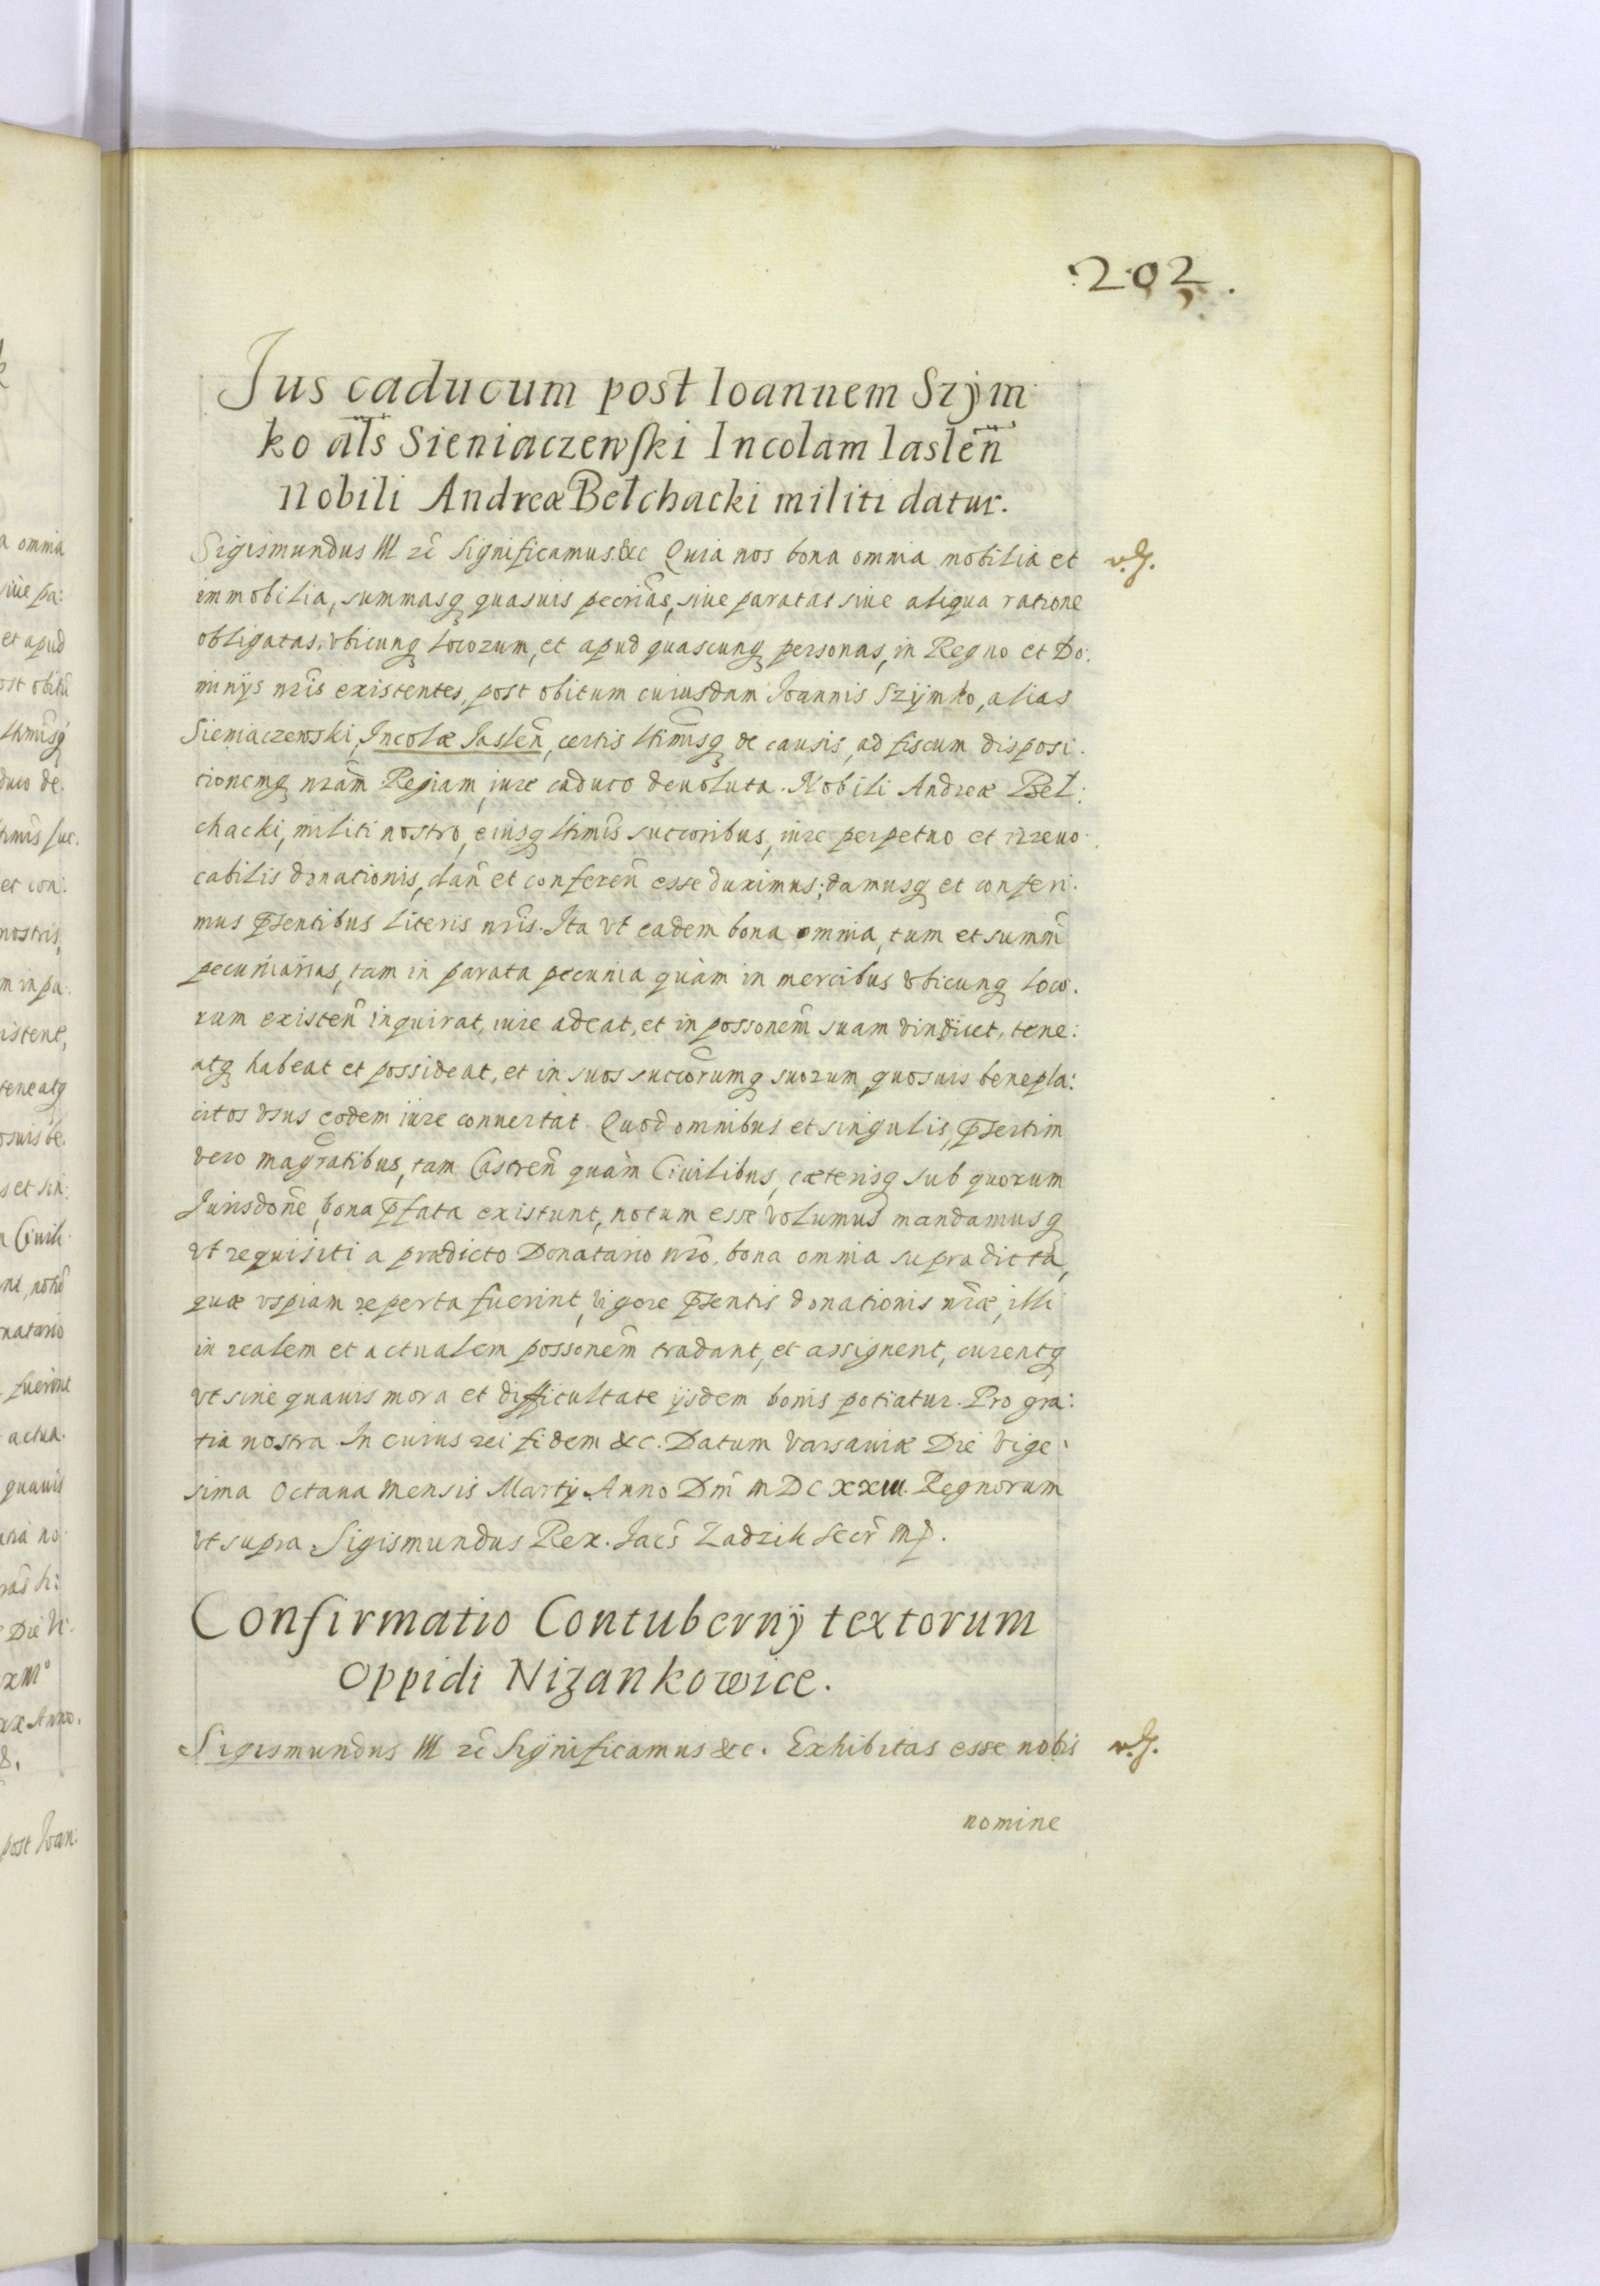 202.
Jus caducum post Ioannem Szÿm
ko als Sieniaczewski Incolam Iaslen̄
nobili Andreæ Bełchacki militi datur.
Sigismundus III rc̄ significamus &c Quia nos bona omnia mobilia et
v. J.
immobilia, summasq quasuis pecrīas, siue paratas siue aliqua ratione
obligatas, vbicunq locorum, et apud quascunq personas, in Regno et Do:
minijs nrīs existentes, post obitum cuiusdam Joannis Szÿmko, alias
Sieniaczewski, Incolæ Jaslen̄, certis ltimīsq de causis, ad fiscum disposi:
tionemq nram̄ Regiam iure caduco deuoluta. Nobili Andreæ Beł:
chacki, militi nostro, eiusq ltimīs succoribus, iure perpetuo et irreuo:
cabilis donationis, dan̄ et conferen̄ esse duximus; damusq et conferi:
mus p̄sentibus literis nrīs. Ita vt eadem bona omnia, tum et summ̄
pecuniarias, tam in parata pecunia quàm in mercibus vbicunq loco:
rum existen̄ inquirat, iure adeat, et in possonem̄ suam vindicet, tene:
atq habeat et possideat, et in suos succorumq suorum quosuis benepla:
citos vsus eodem iure conuertat. Quod omnibus et singulis, p̄sertim
vero magrātibus, tam Castren̄ quàm Ciuilibus, cæterisq sub quorum
Jurisdonē, bona p̄fata existunt, notum esse volumus mandamusq
vt requisiti a prædicto Donatario nrō, bona omnia supradicta,
quæ vspiam reperta fuerint, vigore p̄sentis donationis nrǣ, illi
in realem et actualem possonem̄ tradant, et assignent, curentq
vt sine quauis mora et difficultate ijsdem bonis potiatur. Pro gra:
tia nostra. In cuius rei fidem &c. Datum Varsauiæ Die Vige:
sima Octaua Mensis Martij Anno Dnī MDCXXIII. Regnorum
vt supra. Sigismundus Rex. Jacs̄ Zadzik Secr̄ mp.
Confirmatio Contubernÿ textorum
Oppidi Niżankowice.
Sigismundus III rc̄ Significamus &c. Exhibitas esse nobis
v. J.
nomine